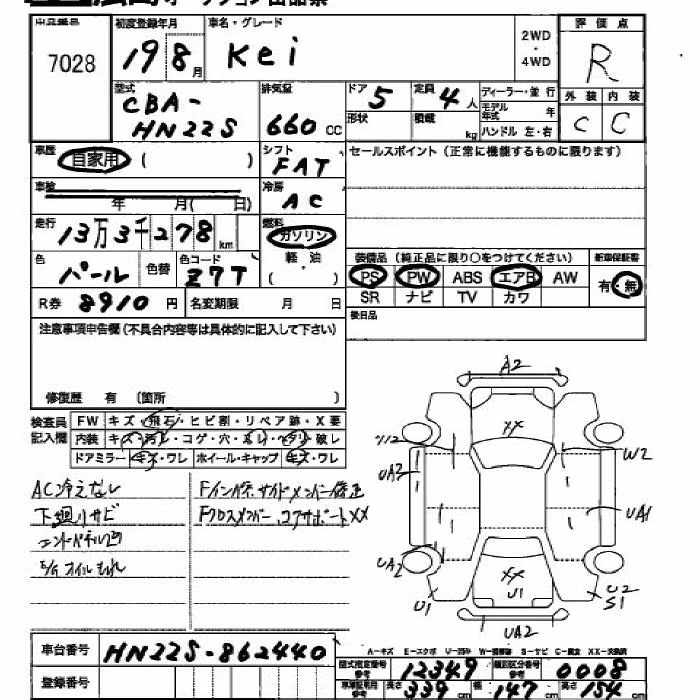 出品番号 初度登録年月 車名・グレード 2WD・4WD 評価点
7028 19 8月 Kei R
型式 排気量 ドア 5 定員 4人 ディーラー・並行 外装 内装
CBA-HN22S 660cc 形状 積載 kg モデル年式 年 C C
ハンドル 左・右
車歴 自家用 ( ) シフト FAT セールスポイント(正常に機能するものに限ります)
車検 年 月( 日) 冷房 AC
走行 13万3千278km 燃料 ガソリン
軽・油
( )
色 パール 色替 色コード Z7T 装備品 (純正品に限り○をつけてください) 新車保証書
PS PW ABS エアB AW 有・無
R券 8910円 名変期限 月 日 SR ナビ TV カワ
後日品
注意事項申告欄(不具合内容等は具体的に記入して下さい)
修復歴 有 〔箇所 〕
検査員記入欄 FW キズ・飛石・ヒビ割・リペア跡・X要
内装 キズ・汚レ・コゲ・穴・
ドアミラー キズ・ワレ ホイール・キャップ キズ・ワレ
AC冷えない
下廻りサビ
エンドパネル凹
E/Gオイルもれ
Fインパネ,サイドメンバー修正
Fクロスメンバー,コアサポートXX
A2
XX
W2
UA2
UA1
UA2
XX
U1
U1
U2
S1
UA2
A-キズ E-エクボ U-凹み S-サビ C-腐食 XX-交換済
車台番号 HN22S-862440
型式指定番号 参考 12349 類別区分番号 参考 0008
登録番号
車庫証明用 参考 長さ 339cm 幅 147cm 高さ 154cm